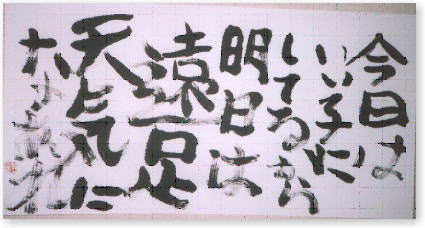 今日は
いい子に
してるから
明日は
遠足
天気に